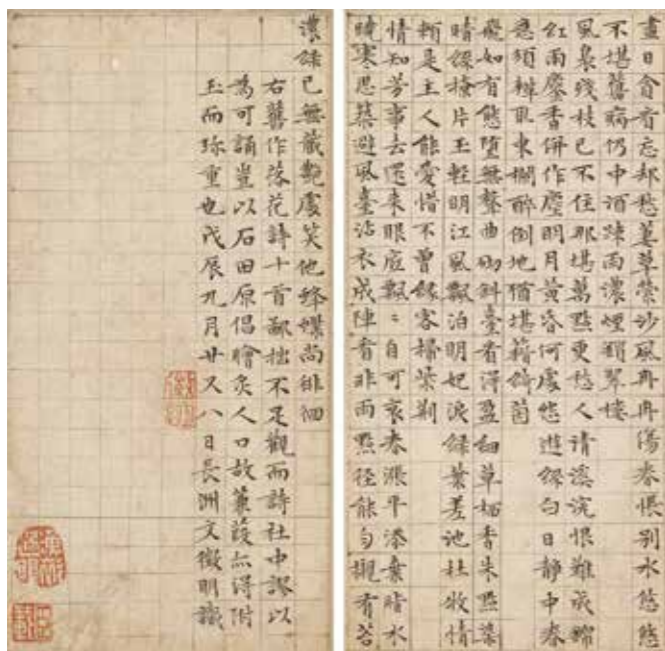 盡日貪看忘却愁蔓草縈沙風冉冉傷春悵別水悠悠
不堪舊病仍中酒疎雨濃煙鎖翠樓
風裊殘枝已不任那堪萬點更愁人清溪浣恨難成錦
紅雨香併作塵明月黃昏何處怨遊絲白日靜中春
急須辦取東欄醉倒地猶堪藉錦茵
飛如有態墮無聲曲砌斜臺看得盈細草栖香朱點染
晴絲撩片玉輕明江風飄泊明妃淚綠葉差池杜牧情
賴是主人能愛惜不曾緣客掃柴荊
情知芳事去還來眼底飄〻自可哀春漲平添棄脂水
曉寒思築避風臺沾衣成陣看非雨點徑能勻襯有苔
濃綠已無藏艷處笑他蜂蝶尚徘徊
右舊作落花詩十首鄙拙不足觀而詩社中謬以
為可誦豈以石田原倡膾炙人口故蒹葭亦得附
玉而珍重也戊辰九月廿又八日長洲文徵明識